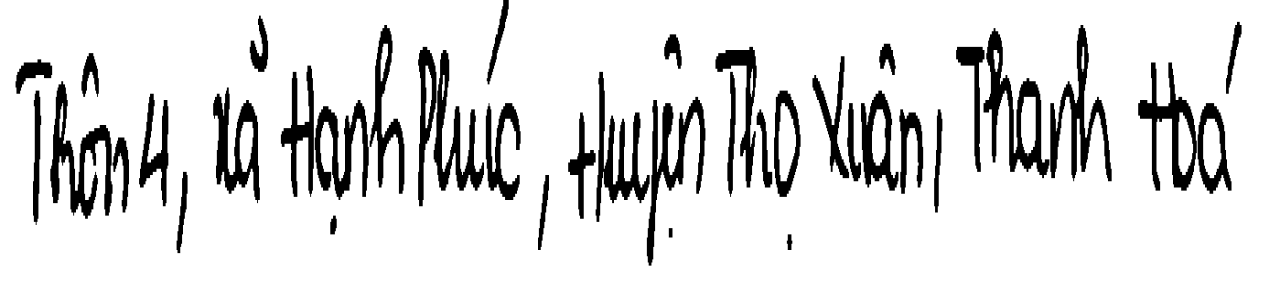 Thôn 4, xã Hạnh Phúc, Huyện Thọ Xuân, Thanh Hoá